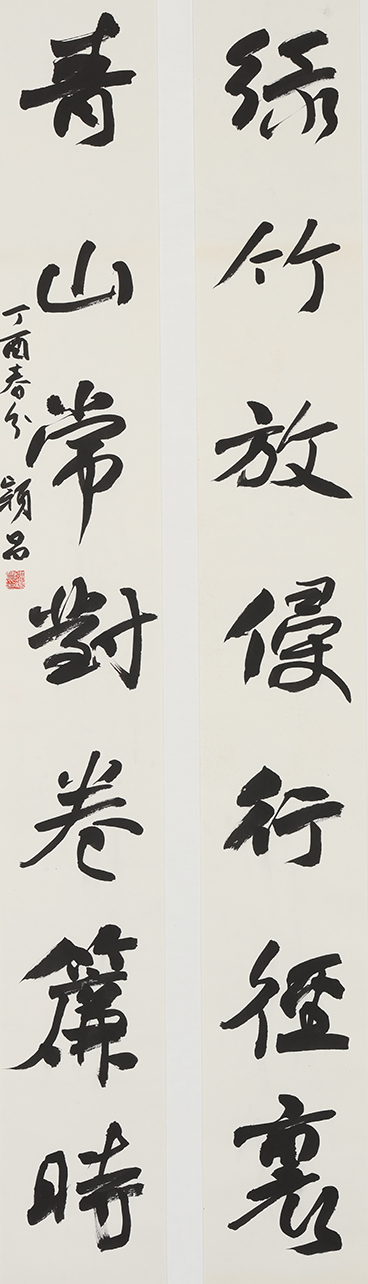 緑竹放侵行徑裏
青山常對卷簾時
丁酉春分 穎昌